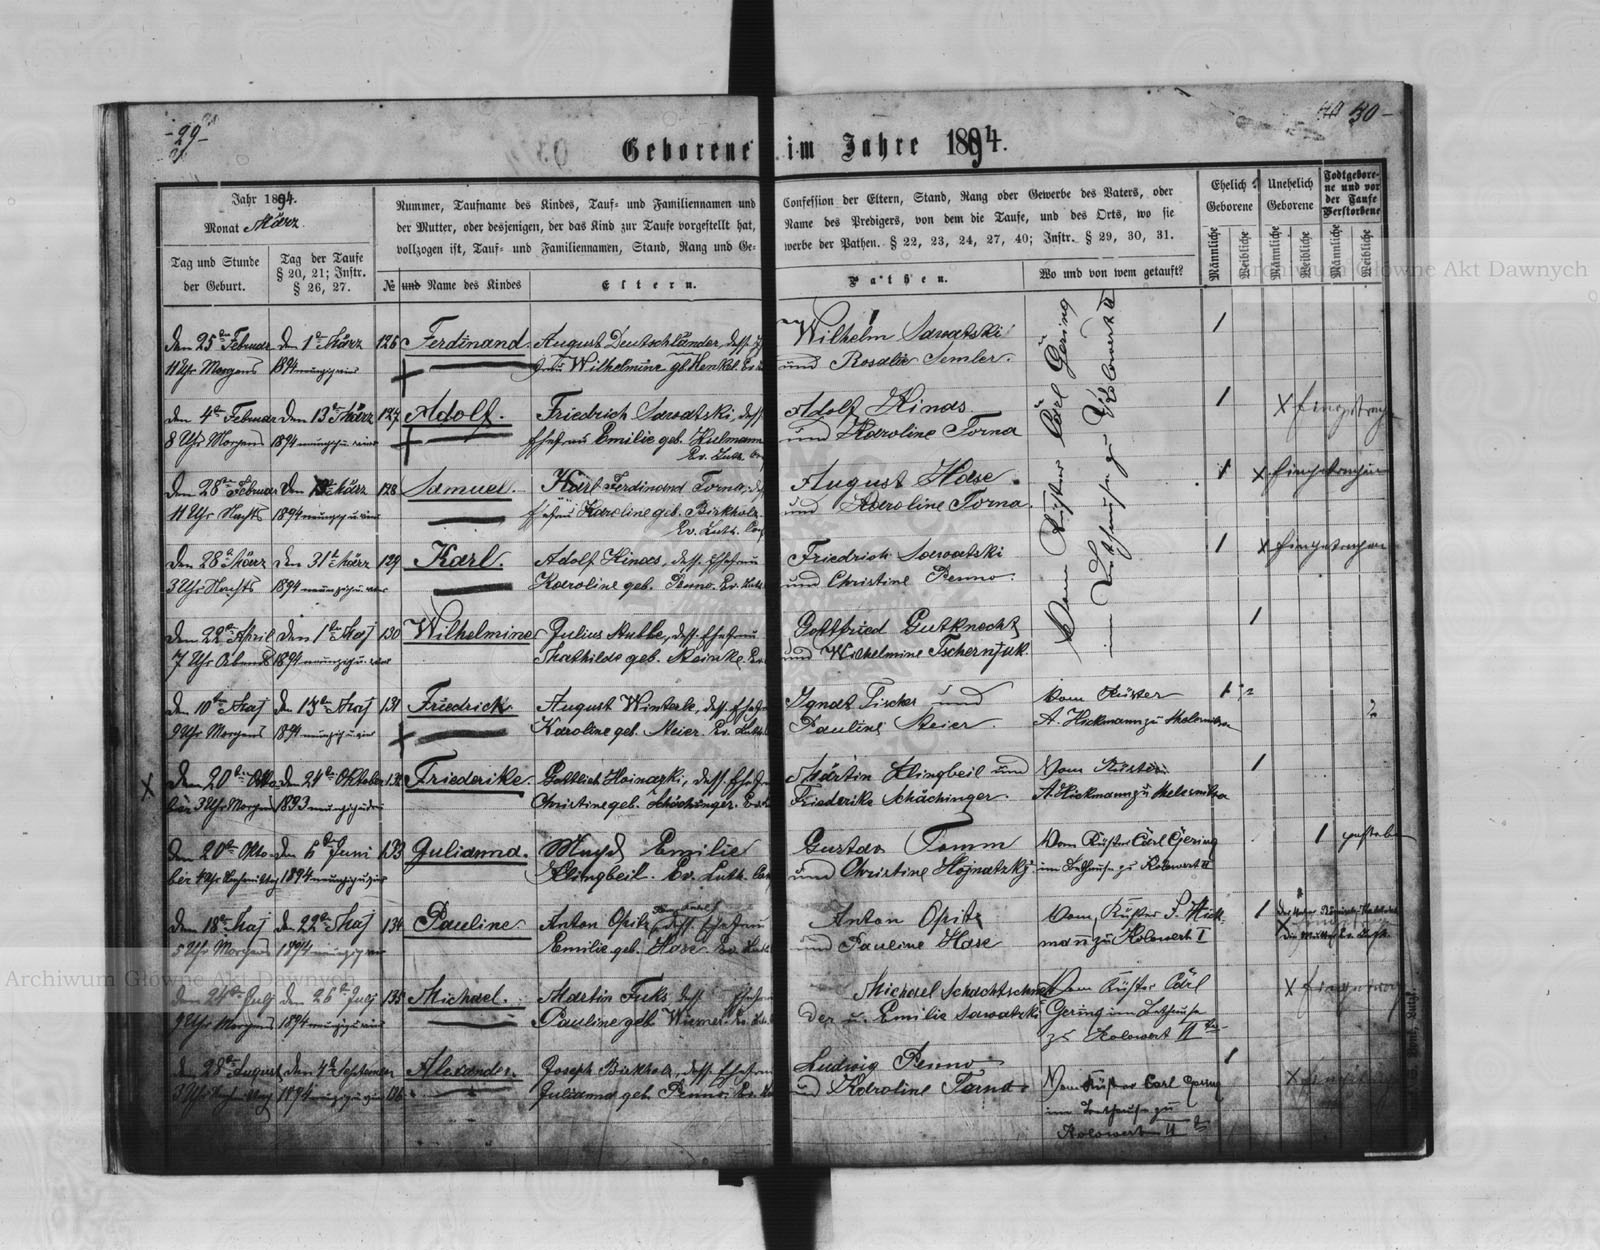 - 29 -
30 -
Geborene im Jahre 1894.
Jahr 1894.
Monat März
Tag und Stunde
der Geburt.
Tag der Taufe
§ 20, 21; Instr.
§ 26, 27.
Nummer, Taufname des Kindes, Tauf- und Familiennamen und
der Mutter, oder desjenigen, der das Kind zur Taufe vorgestellt hat,
vollzogen ist, Tauf- und Familiennamen, Stand, Rang und Ge-
№ und Name des Kindes
Eltern.
Confession der Eltern, Stand, Rang oder Gewerbe des Vaters, oder
Name des Predigers, von dem die Taufe, und des Orts, wo sie
werbe der Pathen. § 22, 23, 24, 27, 40; Instr. § 29, 30, 31.
Pathen.
Wo und von wem getauft?
Ehelich
Geborene
Unehelich
Geborene
Todtgebore-
ne und vor
der Taufe
Verstorbene
Männliche
Weibliche
Männliche
Weibliche
Männliche
Weibliche
den 25ten Februar den 1ten März 126 Ferdinand. August Deutschländer, dess. Wilhelm Sawatski 1
11 Uhr Morgens 1894 Wilhelmine geb. Henkel. und Rosalie Semler.
den 4ten Februar den 13ten März 127 Adolf. Friedrich Sawatski, dess. Adolf Hinas 1
8 Uhr Morgens 1894 Ehefrau Emilie geb. Kulmann und Karoline Torna
Ev. Luth.
den 28ten Februar den März 128 Samuel. Karl Ferdinand Torna, August Hase. 1
11 Uhr Nachts 1894 Ehefrau Karoline geb. Birkholz. und Karoline Torna.
Ev. Luth.
den 28ten März den 31ten März 129 Karl. Adolf Hinas, dess. Ehefrau Friedrich Sawatski 1
3 Uhr Nachts 1894 Karoline geb. Penno. Ev. Luth. und Christine Penno.
Vom Küster Carl Gering
im Bethause zu Kolowert II
den 22ten April den 1ten Maj 130 Wilhelmine Julius Stubbe, dess. Ehefrau Gottfried Gutknecht 1
7 Uhr Abends 1894 Mathilde geb. Reinke. und Wilhelmine Tschernjuk.
den 10ten Maj den 15ten Maj 131 Friedrich August Winterle, dess. Ehefrau Ignat Fischer und Vom Küster 1
9 Uhr Morgens 1894 Karoline geb. Meier. Ev. Luth. Pauline Meier. A. Hickmann zu
den 20ten Okto- den 24ten Oktober 132 Friederike. Gottlieb Hoinazki, dess. Ehefrau Martin Klingbeil und Vom Küster 1
ber 3 Uhr Morgens 1893 Christine geb. Schächinger. Friederike Schächinger. A. Hickmann zu
den 20ten Okto- den 6ten Juni 133 Julianna. Magd Emilie Gustav Tomm Vom Küster Carl Gering 1
ber 1894 Klingbeil. Ev. Luth. und Christine Hojnatzki. im Bethause zu Kolowert II
den 18ten Maj den 22ten Maj 134 Pauline. Anton Opitz, dess. Ehefrau Anton Opitz Vom Küster Hick- 1
5 Uhr Morgens 1894 Emilie geb. Hase. Ev. Luth. und Pauline Hase mann zu Kolowert I
den 24ten Julj den 26ten Julj 135 Michael. Martin Fuks, dess. Ehefrau Michael Schachtschnei- Vom Küster Carl
9 Uhr Morgens 1894 Pauline geb. Wiemer. der u. Emilie Sawatzki Gering im Bethause
zu Kolowert II
den 28ten August den 4ten September Alexander. Joseph Birkholz, dess. Ehefrau Ludwig Penno 1
3 Uhr 1894 136 Julianna geb. Penno. und Karoline Torna. Vom Küster Carl Gering
im Bethause zu
Kolowert II
Archiwum Główne Akt Dawnych
Archiwum Główne Akt Dawnych